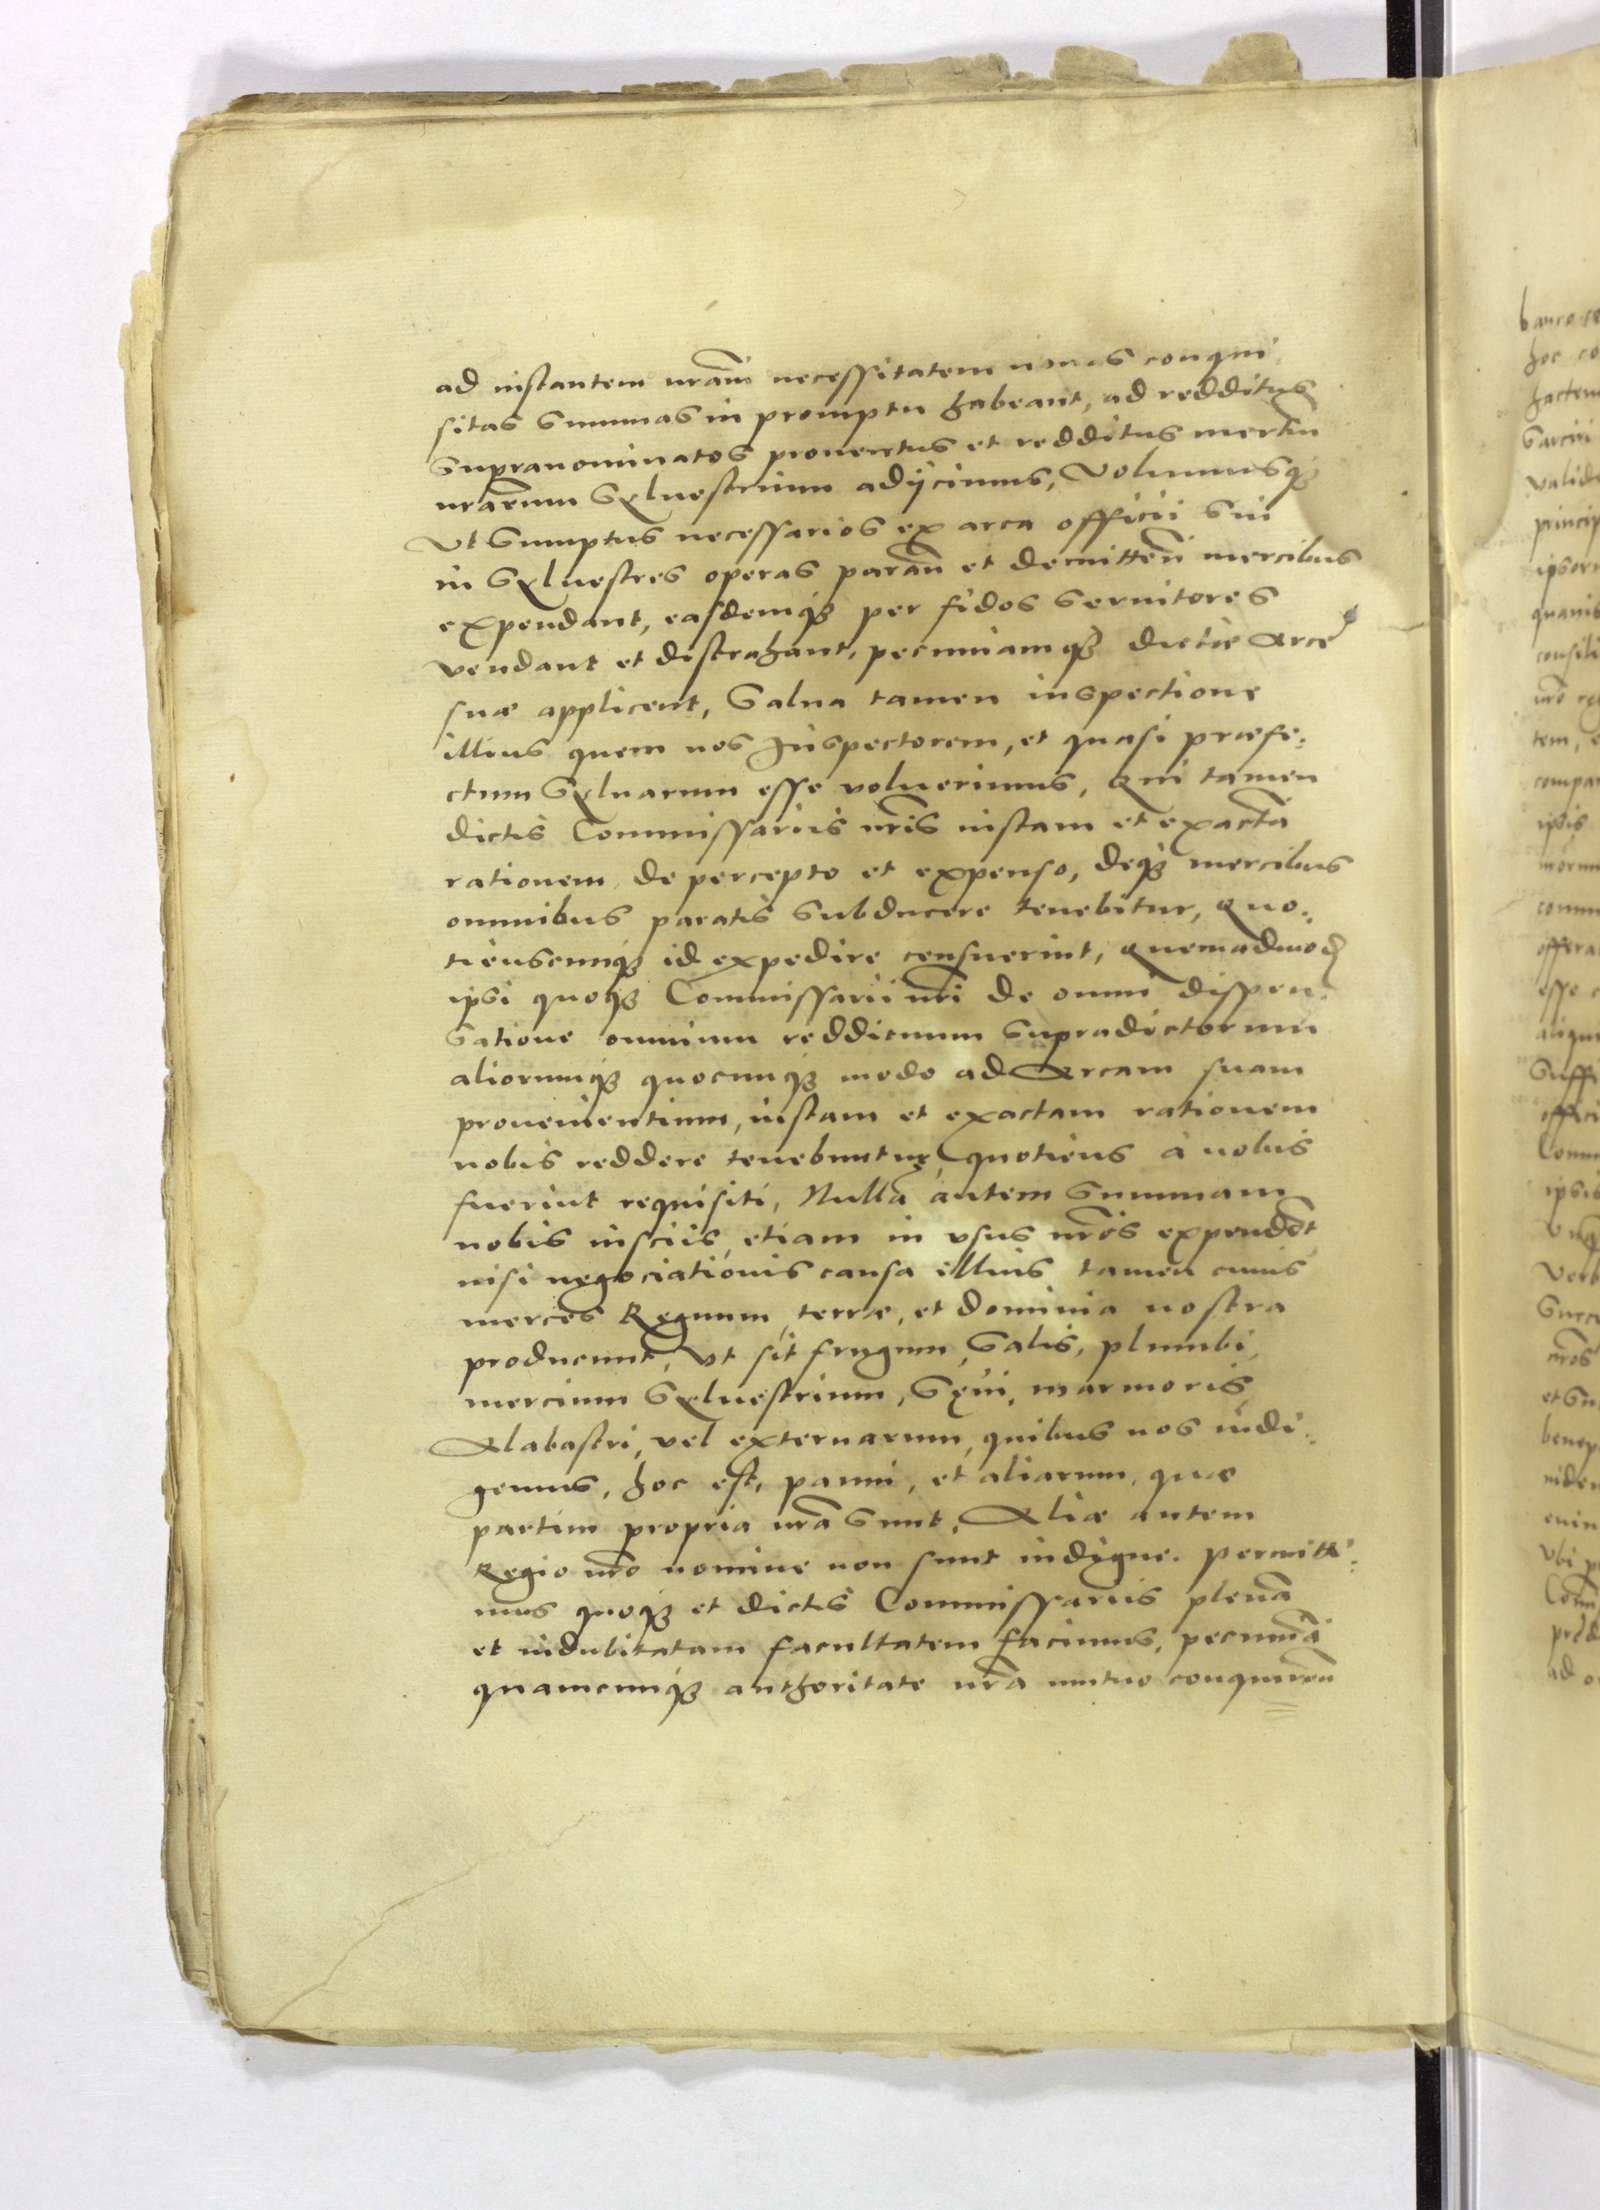 ad instantem nrãm necessitatem conqui
sitas Summas in promptu habeant, ad redditus
Supranominatos prouentus et redditus mertiũ
nrarum Syluestrium adijcimus, Volumusq₃
Vt Sumptus necessarios ex arca officii Sui
in Syluestres operas parañ et demitteñ mercibus
expendant, easdemq₃ per fidos Seruitores
vendant et distrahant, pecuniamq₃ dictæ Arce
suæ applicent, Salua tamen inspectione
illius quem nos Inspectorem, et quasi præfe:
ctum Syluarum esse voluerimus, Qui tamen
dictis Commissariis nr̃is iustam et exactã
rationem de percepto et expenso, deq₃ mercibus
omnibus paratis Subducere tenebitur, Quo:
tienscunq₃ id expedire censuerint, Quemadmod
ipsi quoq₃ Commissarii nr̃i de omni dispen:
Satione omnium reddituum Supradictorum
aliorumq₃ quocunq₃ modo ad Arcam suam
prouenientium, iustam et exactam rationem
nobis reddere tenebuntur, quotiens à nobis
fuerint requisiti, Nullã autem Summam
nobis insciis, etiam in vsus nr̃os expendẽt
nisi negociationis causa illius tamen cuius
merces Regnum, terræ, et dominia nostra
producunt, Vt sit frugum, Salis, plumbi,
mercium Syluestrium, Sęui, marmoris,
Alabastri, vel externarum, quibus nos indi:
gemus, hoc est, panni, et aliarum, quæ
partim propria nrã Sunt, Aliæ autem
Regio nr̃o nomine non sunt indigne. permitti:
mus quoq₃ et dictis Commissariis plenã
et indubitatam facultatem facimus, pecuniã
quamcunq₃ authoritate nrã mutuo conquireñ